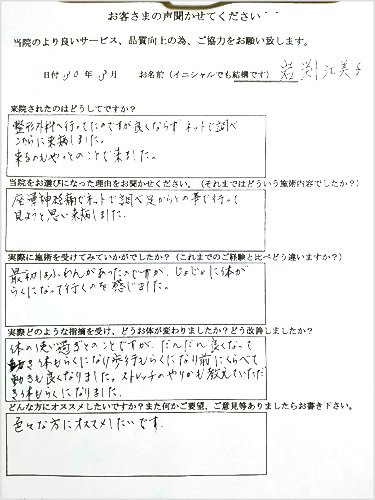 お客さまの声聞かせてください
当院のより良いサービス、品質向上の為、ご協力をお願い致します。
日付 30年 3月 お名前（イニシャルでも結構です） 岩渕 江美子
来院されたのはどうしてですか？
整形外科へ行ってたのですが良くならず ネットで調べ
こちらに来院しました。
来るのもやっとのことで来ました。
当院をお選びになった理由をお聞かせください。（それまではどういう施術内容でしたか？）
座骨神経痛でネットで調べ足からとの事で行って
見ようと思い来院しました。
実際に施術を受けてみていかがでしたか？（これまでのご経験と比べどう違いますか？）
最初はふあんがあったのですが、じょじょに体が
らくになって行くのを感じました。
実際どのような指摘を受け、どうお体が変わりましたか？どう改善しましたか？
体の使い過ぎとのことですが、だんだん良くなって
き体もらくになり歩行もらくになり前にくらべて
動きも良くなりました。ストレッチのやりかも教えていただ
き体もらくになりました。
どんな方にオススメしたいですか？また何かご要望、ご意見等ありましたらお書き下さい。
色々な方にオススメしたいです。